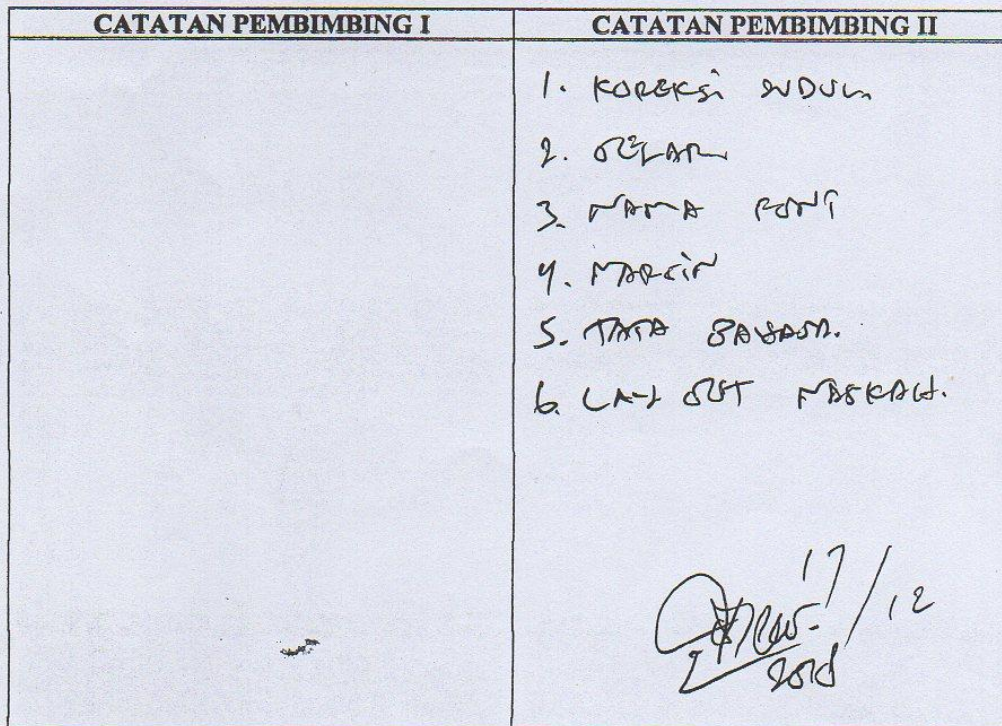 CATATAN PEMBIMBING I
CATATAN PEMBIMBING II
1. KOREKSi JUDUL
2. GELAR
3. NAMA FONT
4. MARGiN
5. TATA BAHASA.
6. LAY OUT NASKAH.
17/12
2018